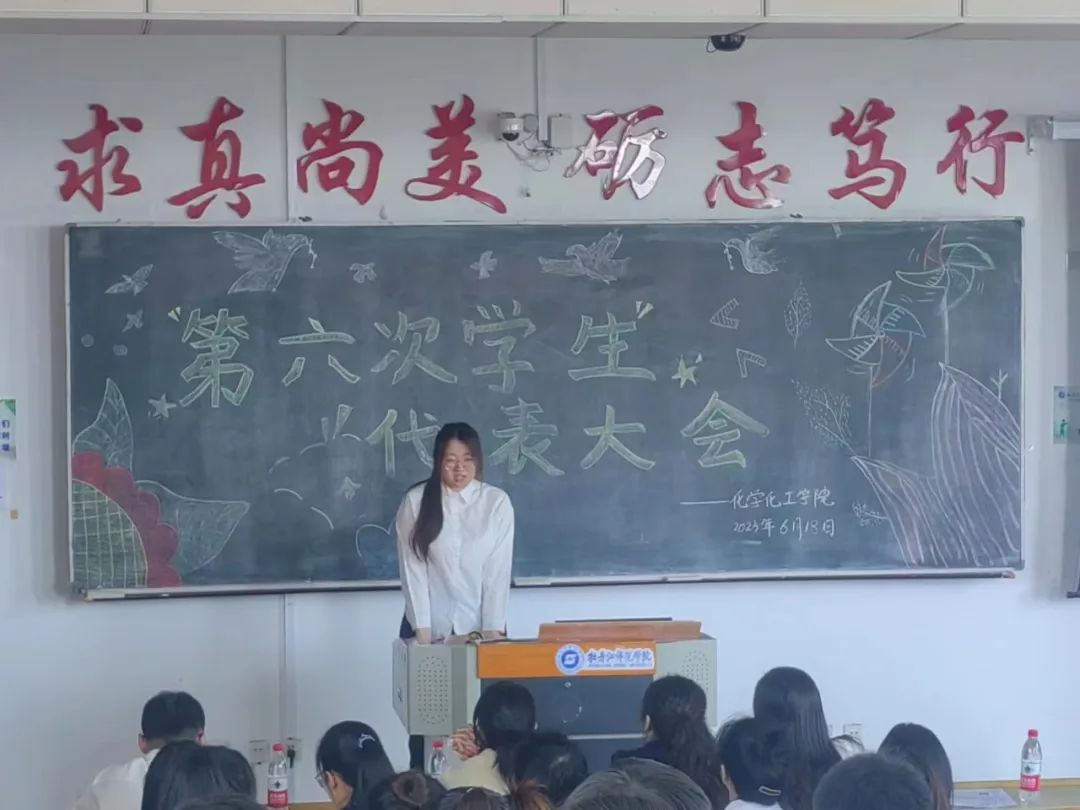 求真尚美 砺志笃行
“第六次学生”
代表大会
——化学化工学院
2023年6月18日
牡丹江师范学院